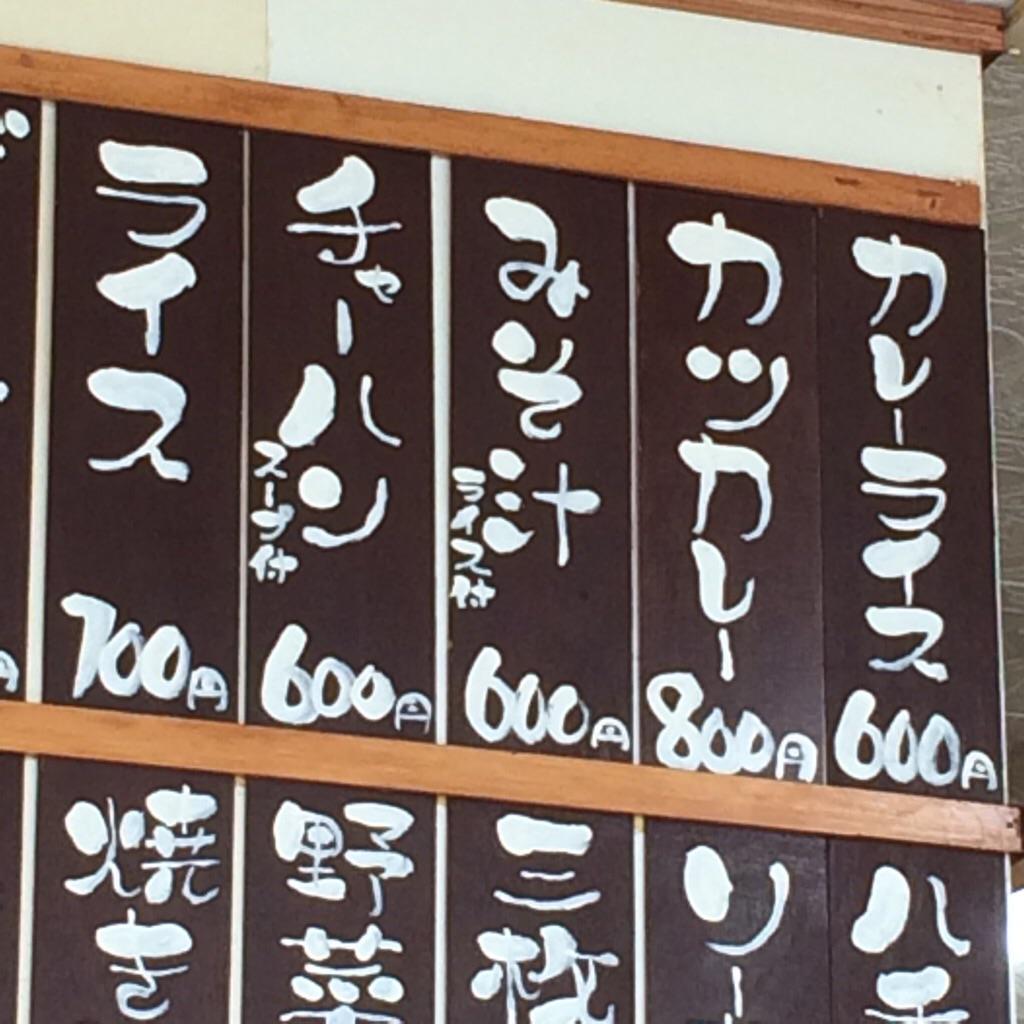 カレーライス
600円
カツカレー
800円
みそ汁
ライス付
600円
チャーハン
スープ付
600円
ライス
700円
円
ハ
ソー
三枚
野菜
焼き